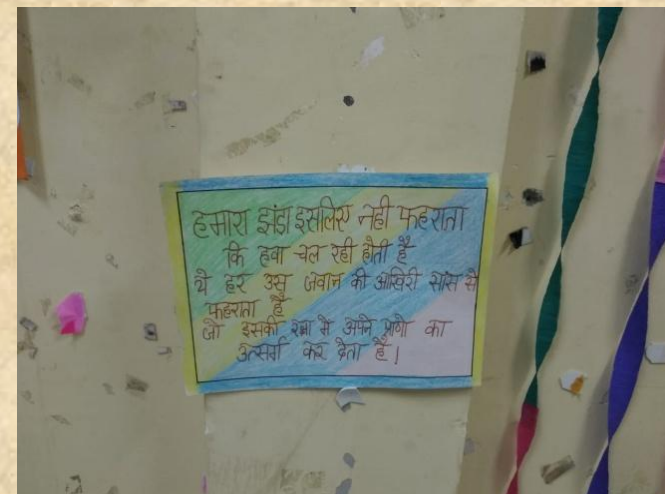 हमारा झंडा इसलिए नही फहराता
कि हवा चल रही होती है
ये हर उस जवान की आखिरी सांस से
फहराता है
जो इसकी रक्षा मे अपने प्राणो का
उत्सर्ग कर देता है!